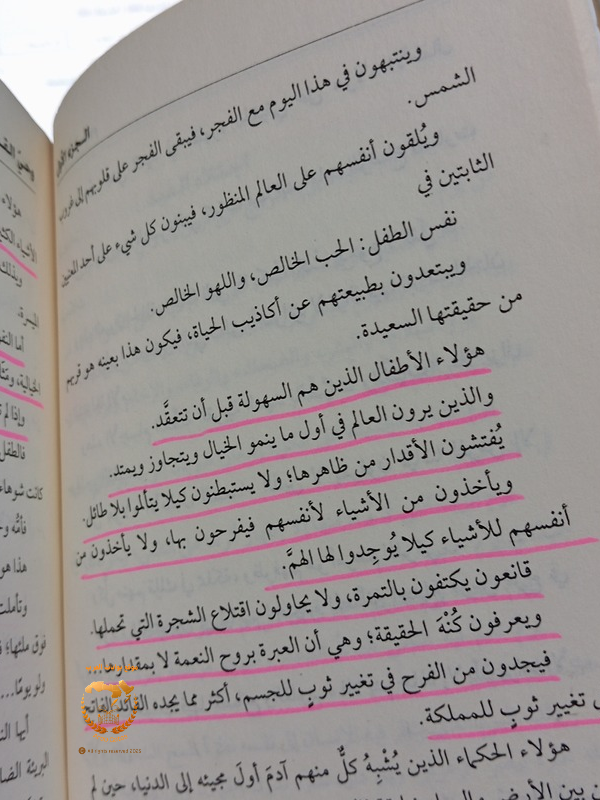 الجزء الأول
وينتبهون في هذا اليوم مع الفجر، فيبقى الفجر على قلوبهم إلى غروب
الشمس.
ويُلقون أنفسهم على العالم المنظور، فيبنون كل شيء على أحد المعنيين
الثابتين في
نفس الطفل: الحب الخالص، واللهو الخالص.
ويبتعدون بطبيعتهم عن أكاذيب الحياة، فيكون هذا بعينه هو قربهم
من حقيقتها السعيدة.
هؤلاء الأطفال الذين هم السهولة قبل أن تتعقَّد.
والذين يرون العالم في أول ما ينمو الخيال ويتجاوز ويمتد.
يُفتشون الأقدار من ظاهرها؛ ولا يستبطنون كيلا يتألموا بلا طائل.
ويأخذون من الأشياء لأنفسهم فيفرحون بها، ولا يأخذون من
أنفسهم للأشياء كيلا يُوجِدوا لها الهمَّ.
قانعون يكتفون بالتمرة، ولا يحاولون اقتلاع الشجرة التي تحملها.
ويعرفون كُنْهَ الحقيقة؛ وهي أن العبرة بروح النعمة لا بمقدارها...
فيجدون من الفرح في تغيير ثوبٍ للجسم، أكثر مما يجده القائد الفاتح
تغيير ثوبٍ للمملكة.
هؤلاء الحكماء الذين يُشْبِهُ كلٌّ منهم آدمَ أولَ مجيئه إلى الدنيا، حين لم
بين الأرض
All rights reserved 2025
هؤلاء
أما
فالطفل
كانت شوهاء
هذا هو
وتأملت
فوق ملئها؛
ولو يومًا...
أيها
البريئة